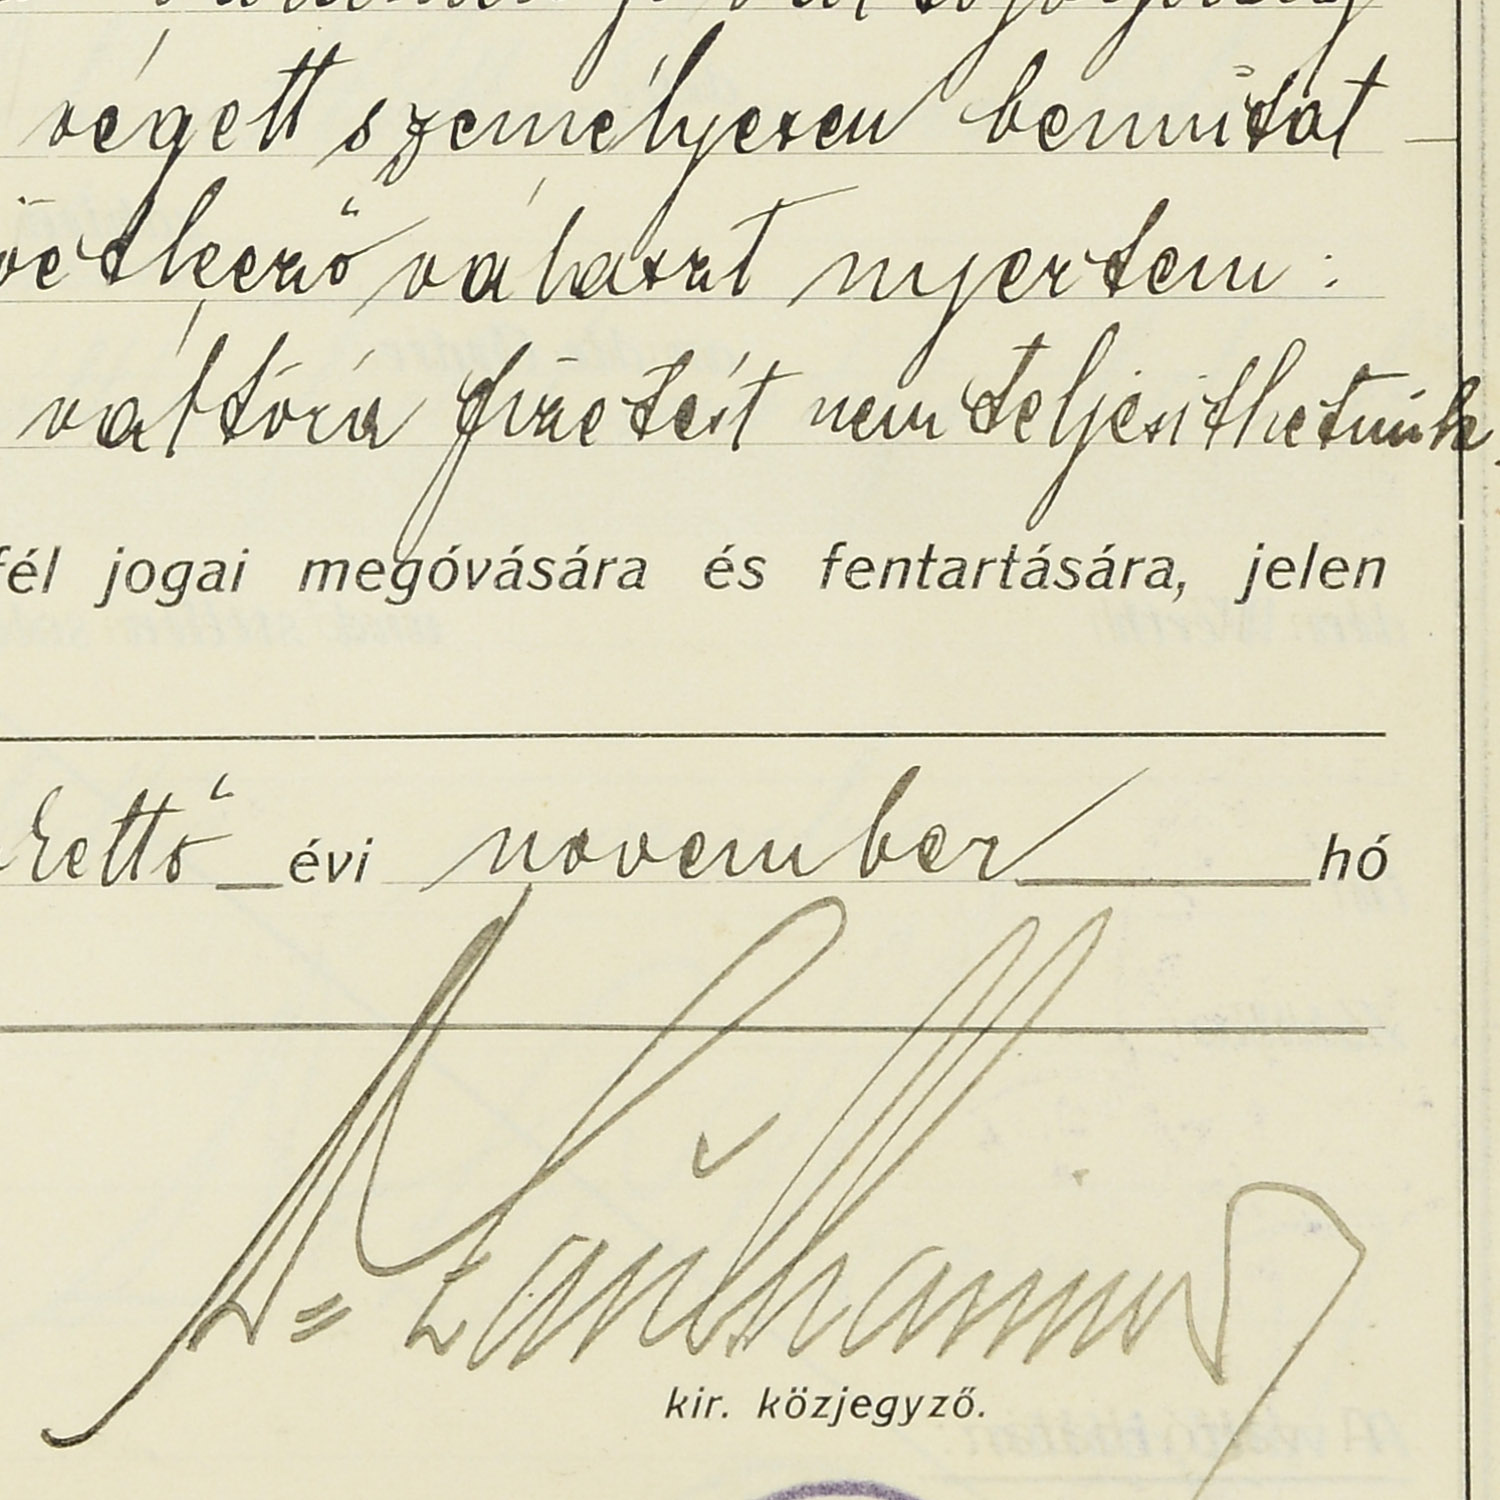 végett személyesen bemutat
vetkező választ nyertem :
váltóra fizetést nem teljesithetünk
fél jogai megóvására és fentartására, jelen
kettő évi november hó
kir. közjegyző.